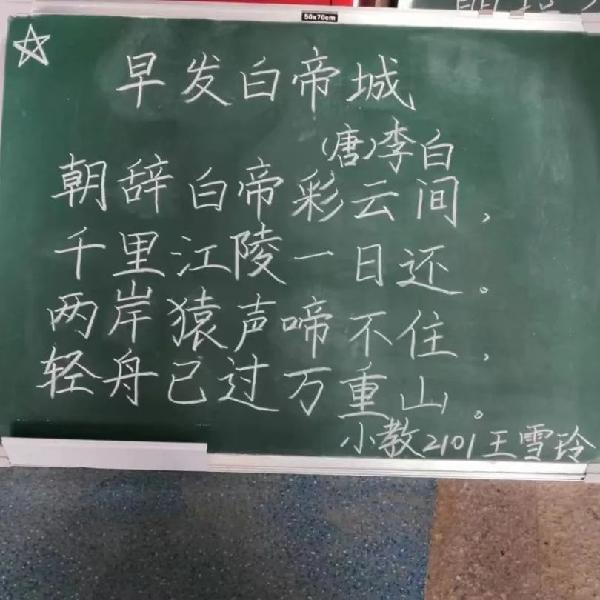 50x70cm
早发白帝城
(唐)李白
朝辞白帝彩云间,
千里江陵一日还。
两岸猿声啼不住,
轻舟已过万重山。
小教2101王雪玲